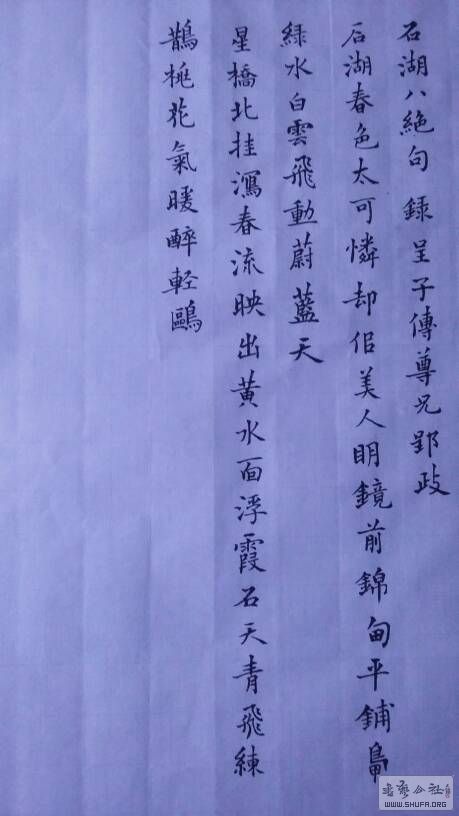 石湖八絶句 録呈子傳尊兄郢政
石湖春色太可憐却佀美人明鏡前錦甸平鋪鳧
緑水白雲飛動蔚藍天
星橋北挂瀉春流映出黄水面浮霞石天青飛練
鵲桃花氣暖醉軽鷗
书艺公社
WWW.SHUFA.ORG